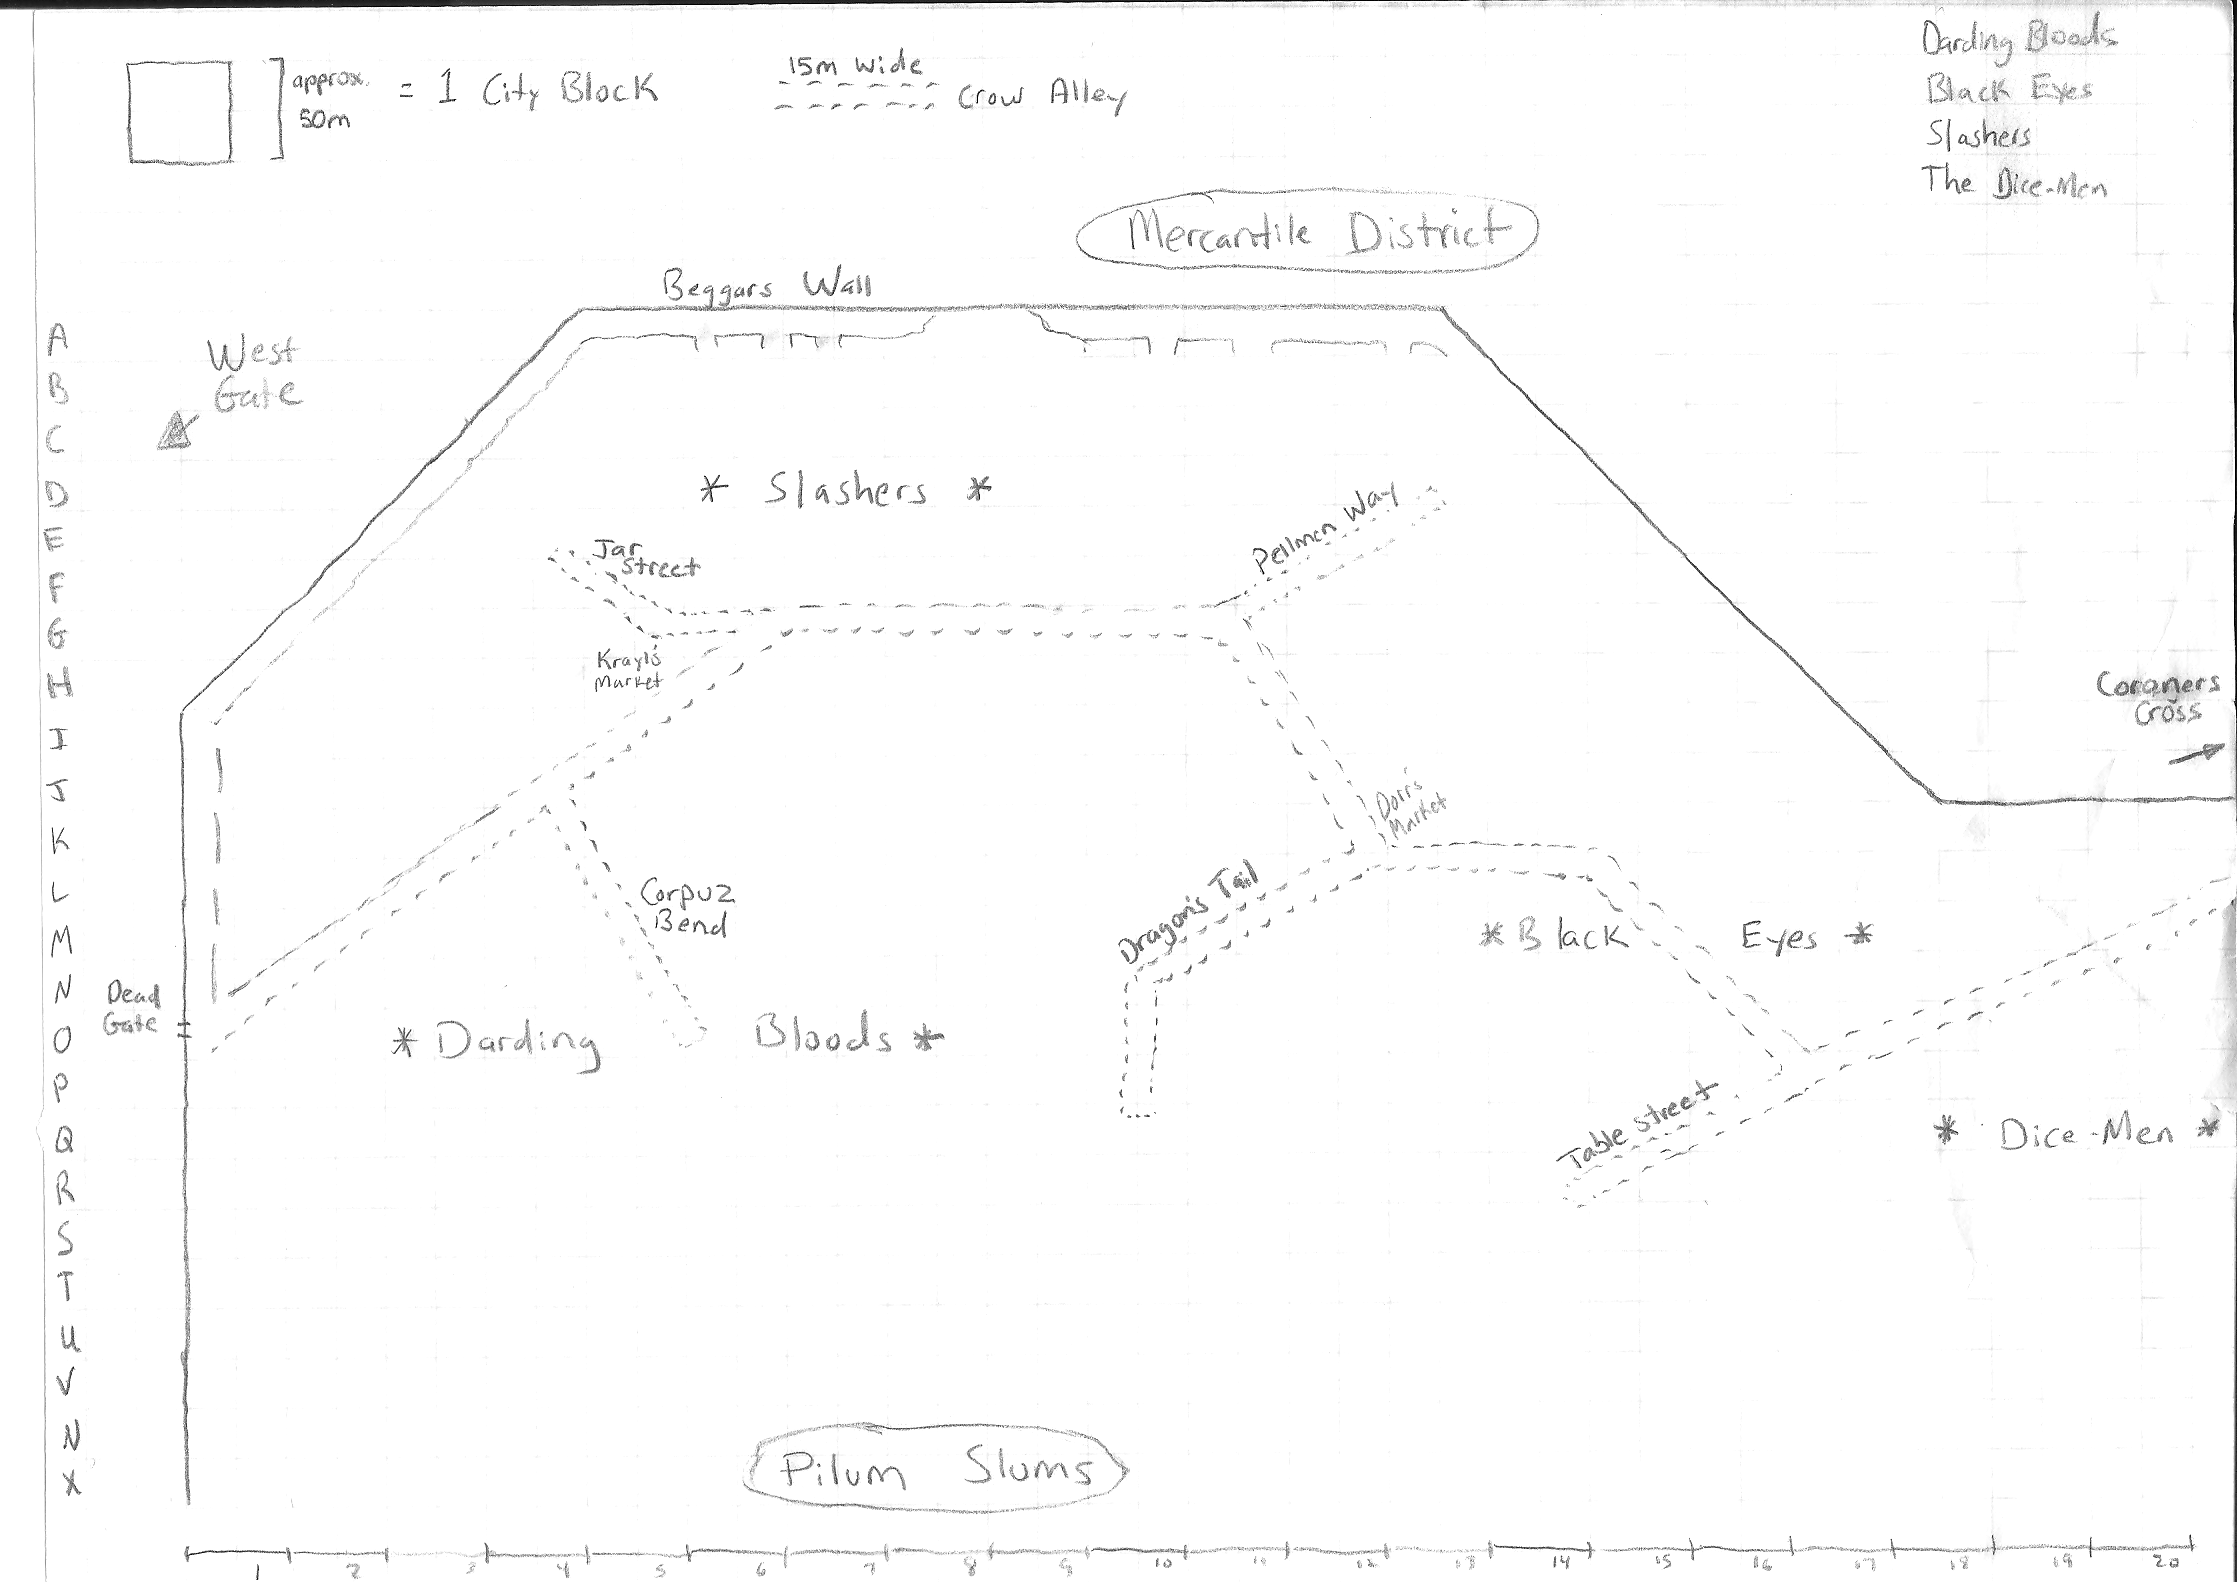 approx.
50m
= 1 City Block
15m wide
Crow Alley
Darding Bloods
Black Eyes
Slashers
The Dice-Men
Mercantile District
Beggars Wall
West
Gate
A
B
C
D
E
F
G
H
I
J
K
L
M
N
O
P
Q
R
S
T
U
V
N
X
* Slashers *
Jar
Street
Pellmen Way
Krayl's
Market
Coroners
Cross
Dorr's
Market
Dragon's Tail
Corpuz
Bend
* Black Eyes *
Dead
Gate
* Darding Bloods *
Table Street
* Dice-Men *
Pilum Slums
1 2 3 4 5 6 7 8 9 10 11 12 13 14 15 16 17 18 19 20